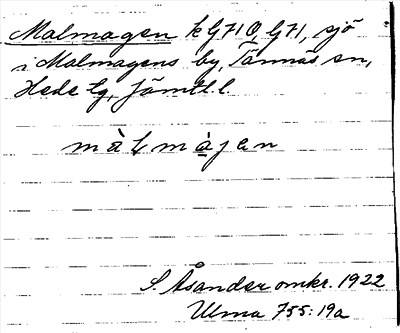 Malmagen k G71 O, G71, sjö
i Malmagens by, Tännäs sn,
Hede tg, Jämtl. l.
màlmàjen
S Åsander omkr. 1922
Ulma 755:19a